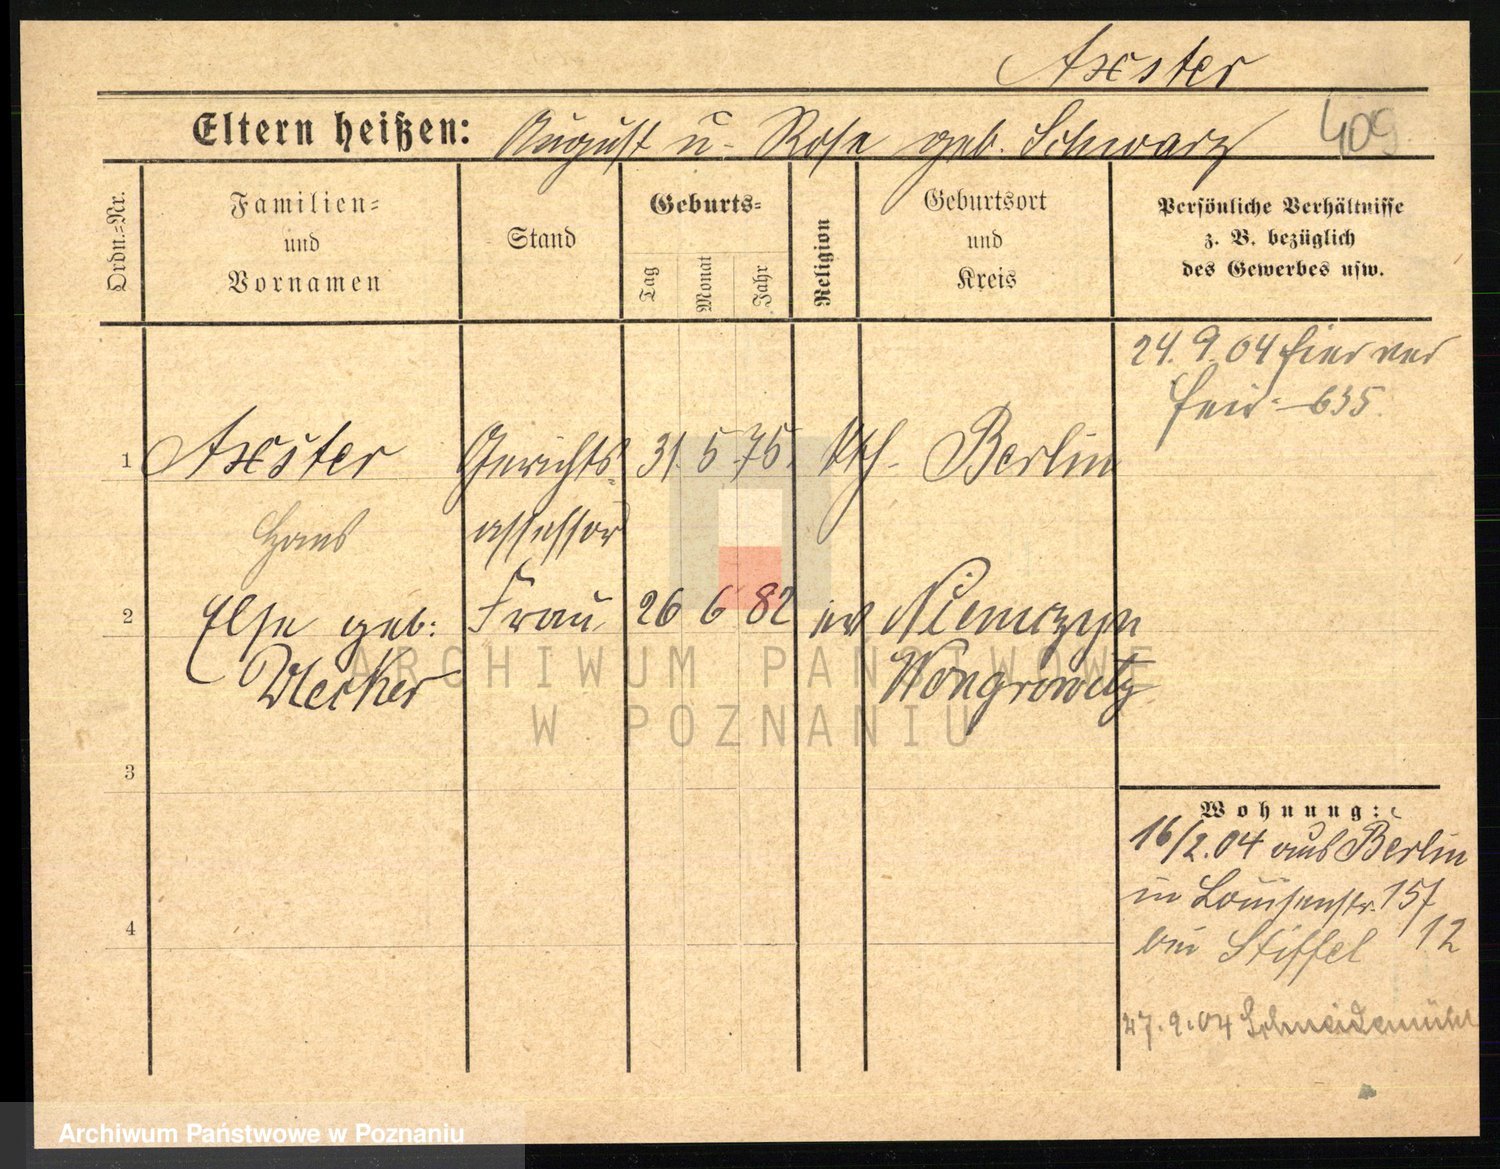 Axster
Eltern heißen: August u. Rosa geb. Schwarz
409
Ordn.-Nr.
Familien-
und
Vornamen
Stand
Geburts-
Tag
Monat
Jahr
Religion
Geburtsort
und
Kreis
Persönliche Verhältnisse
z. B. bezüglich
des Gewerbes usw.
24. 9. 04 hier ver
heir. 635.
1 Axster Gerichts- 31. 5. 75. kth. Berlin
Hans assessor
2 Else geb: Frau 26 6 82 ev
Wongrowitz
3
Wohnung:
16/2.04 aus Berlin
in Louisenstr. 15
bei Stiffel 12
4
27.9.04 Schneidemühl
ARCHIWUM PAŃSTWOWE
W POZNANIU
Archiwum Państwowe w Poznaniu